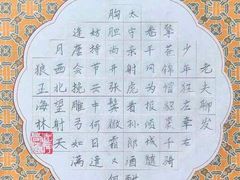 老夫聊发
少年狂左牵黄右
擎苍锦帽貂裘千骑
卷平冈为报倾城随
太守亲射虎看孙郎酒酣
胸胆尚开张鬓微霜又何
妨持节云中何日遣
冯唐会挽雕弓如满
月西北望射天
狼 王海林